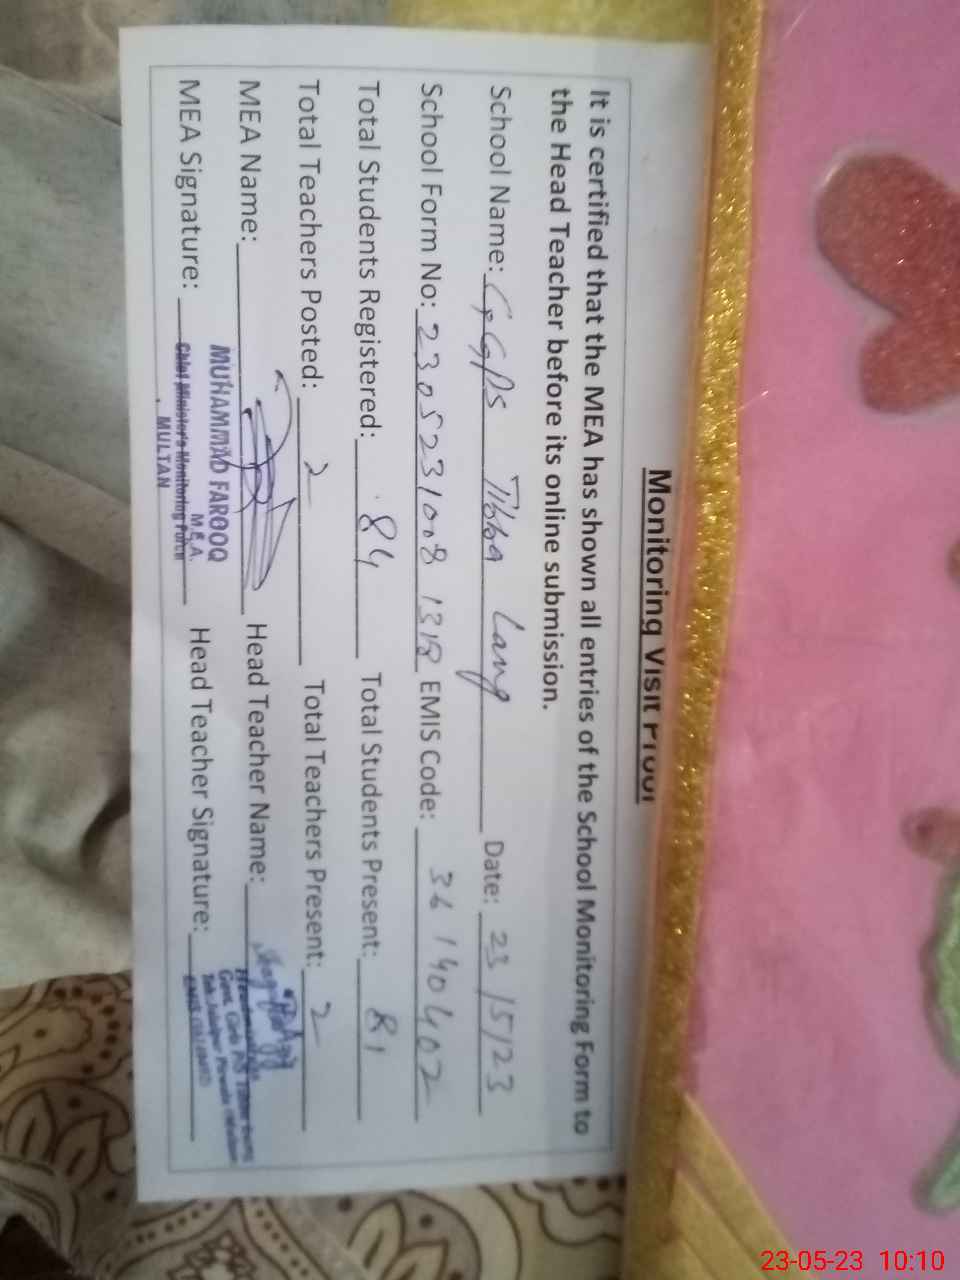 Monitoring Visit Proof
It is certified that the MEA has shown all entries of the School Monitoring Form to
the Head Teacher before its online submission.
School Name: GGPS Tibba Lang Date: 23/5/23
School Form No: 2305231008 1318 EMIS Code: 36140402
Total Students Registered: 84 Total Students Present: 81
Total Teachers Posted: 2 Total Teachers Present: 2
MEA Name: Head Teacher Name:
MUHAMMAD FAROOQ
M.E.A.
MEA Signature: Head Teacher Signature:
Chief Minister's Monitoring Force
MULTAN
Govt. Girls P/S
23-05-23 10:10